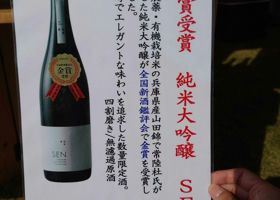 賞受賞 純米大吟醸 SE
農薬・有機栽培米の兵庫県産山田錦で常陸杜氏が
た純米大吟醸が全国新酒鑑評会で金賞を受賞し
た。
でエレガントな味わいを追求した数量限定酒。
四割磨き/無濾過原酒
金賞
SEN